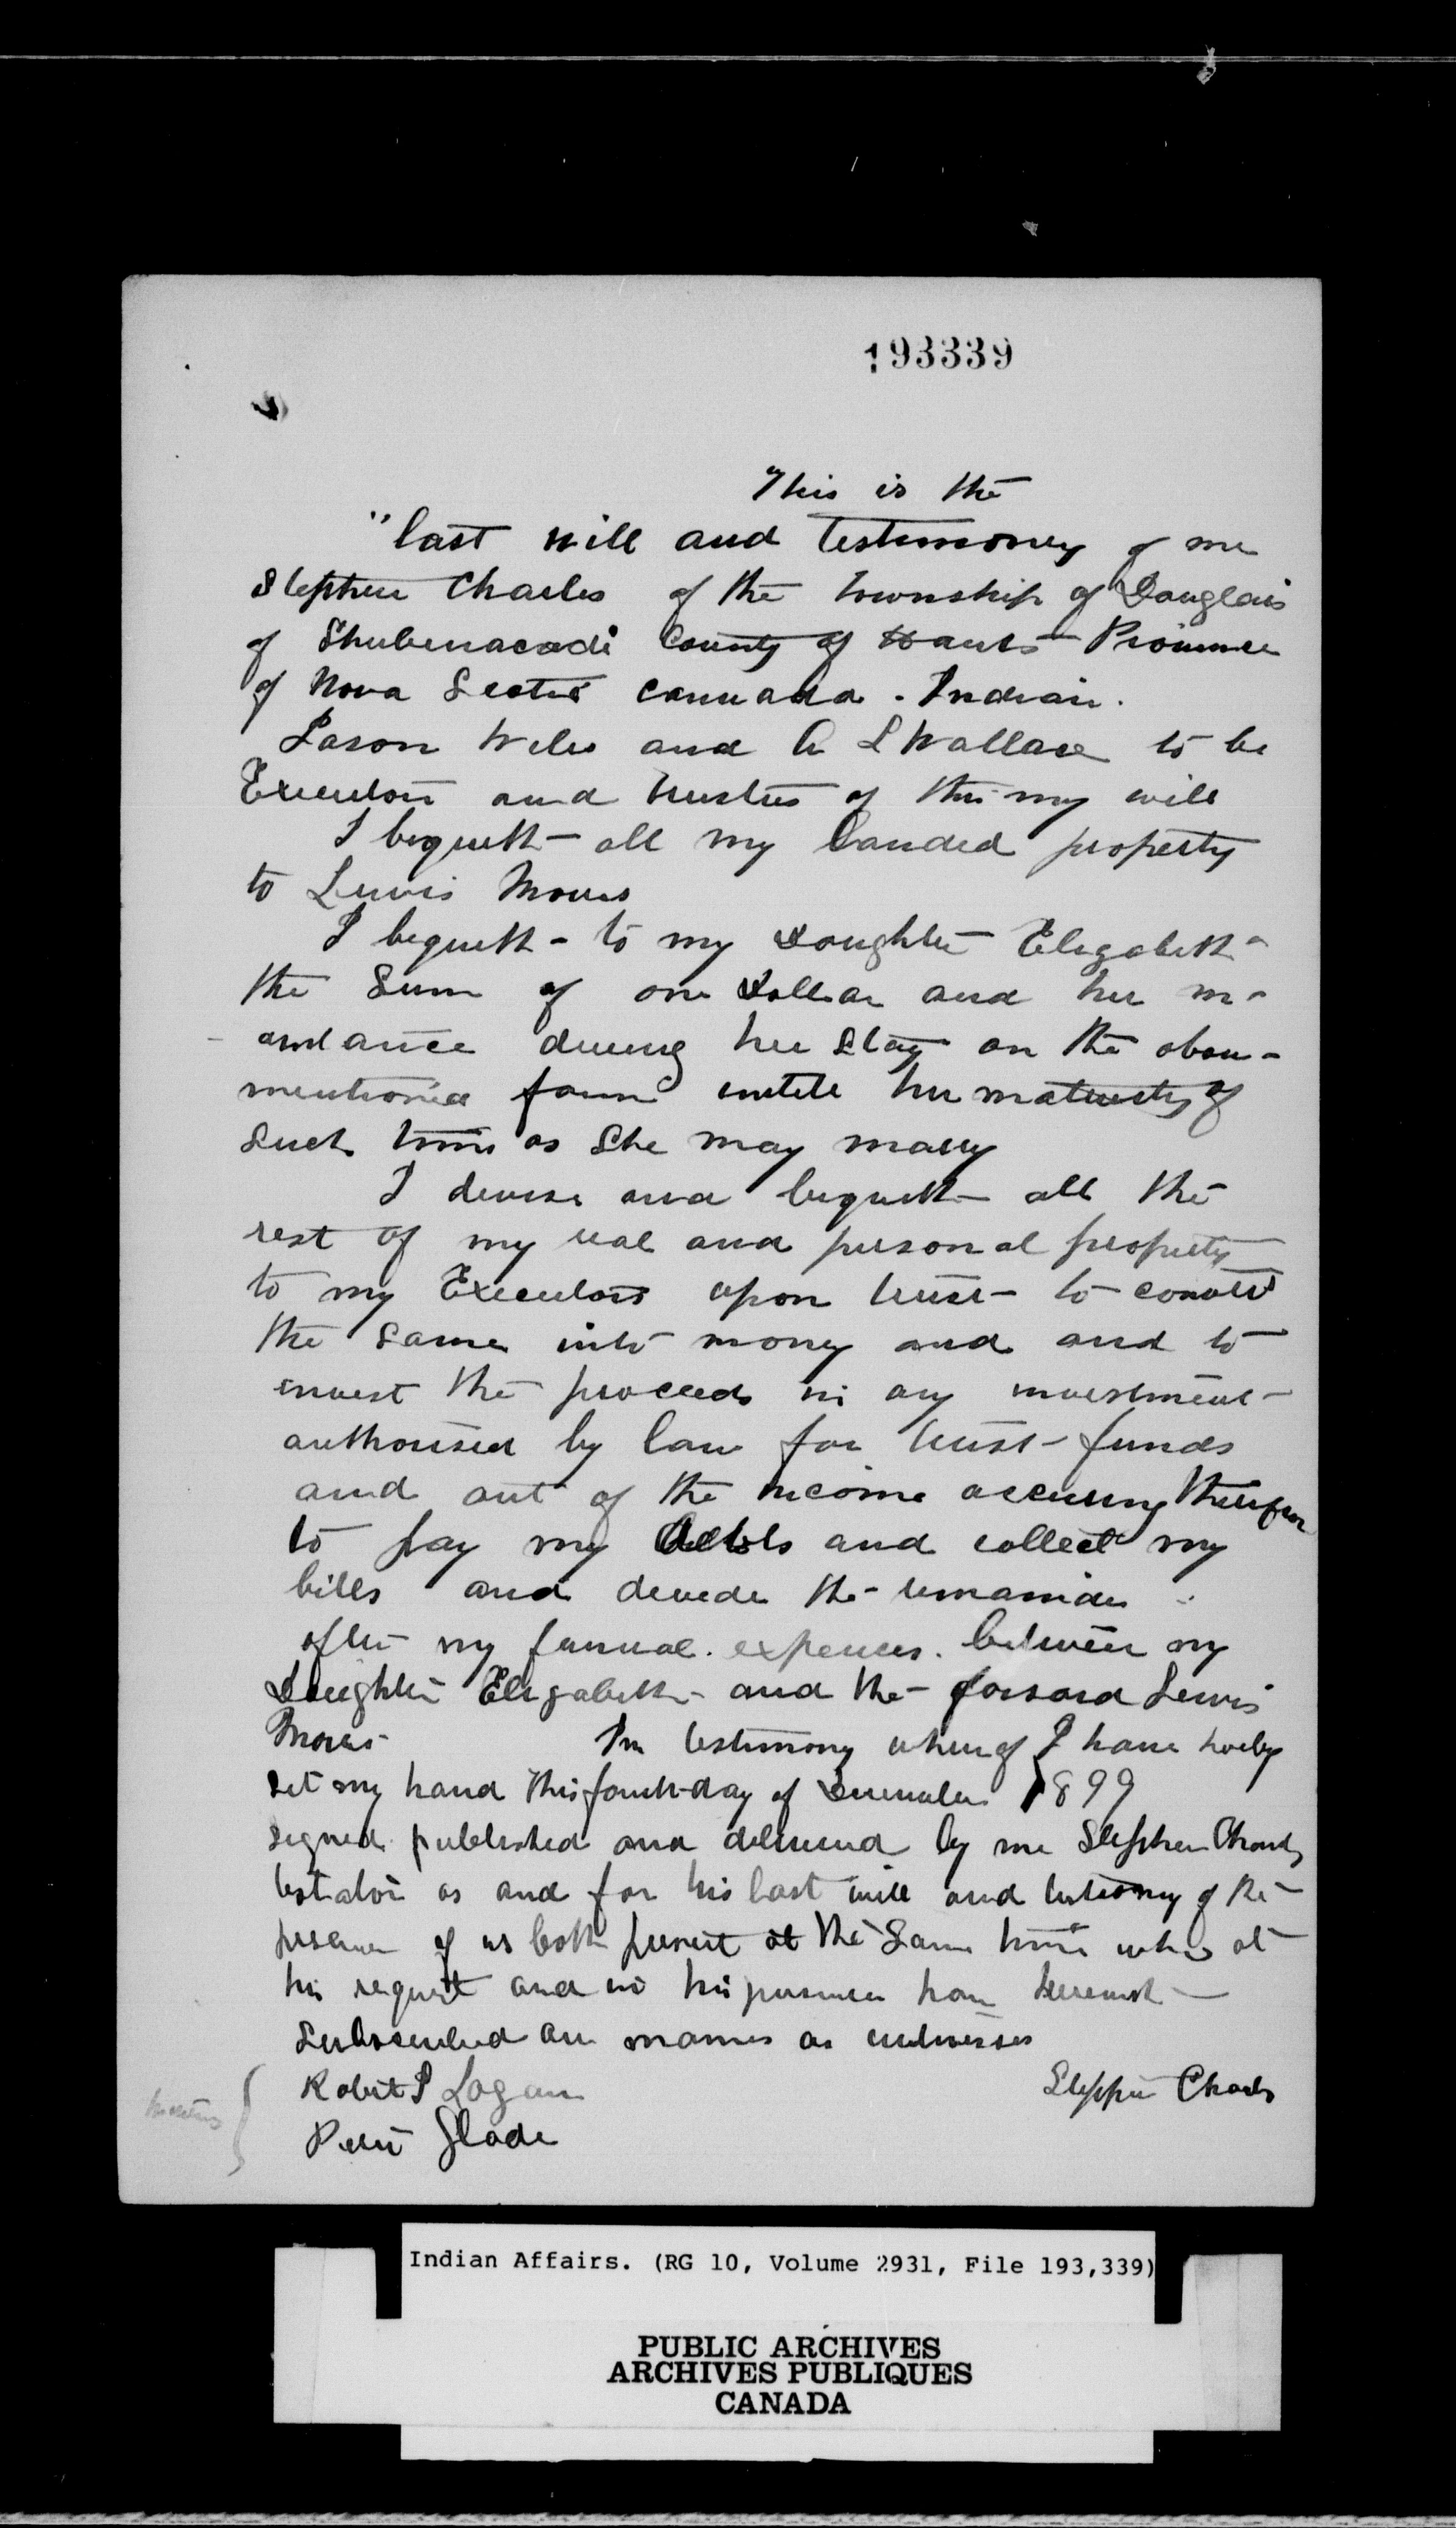 193339
This is the
"last will and testimony of me
Stephen Charles of the township of Douglais
of Shubenacadi County of Hants Province
of Nova Scotia Cannada. Indian.
and A L Wallace to be
Executors and trustees of this my will
I bequeth all my landed property
to Lewis
I bequeth to my Doughter Elizabeth
the Sum of one Dollar and her
during her Stay on the abov-
mentioned farm untill her maturity of
Such time as She may marry
I devise and bequeth all the
rest of my real and personal property
to my Executors upon trust to convert
the same into money and and to
invest the proceeds in any investment
authorised by law for trust funds
and out of the income accruing therefrom
to pay my debts and collect my
bills and devede the remainder
after my funural expences. between my
Daughter Elizabeth and the forsaid Lewis
In testimony wherof I have herby
set my hand this fourth day of December 1899
signed published and delivered by me Stephen Charls
testator as and for his last will and of the
presence of us both present at the Same time who at
his request and in his presence have hereunto
Subscribed our names as witnesses
Robert P Logan Stephen Charls
Peter Glode
Indian Affairs. (RG 10, Volume 2931, File 193,339)
PUBLIC ARCHIVES
ARCHIVES PUBLIQUES
CANADA